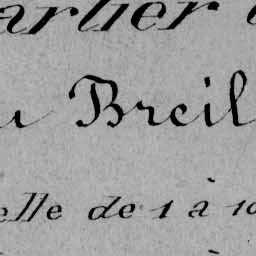 artier
u Breil
elle de 1 à 10